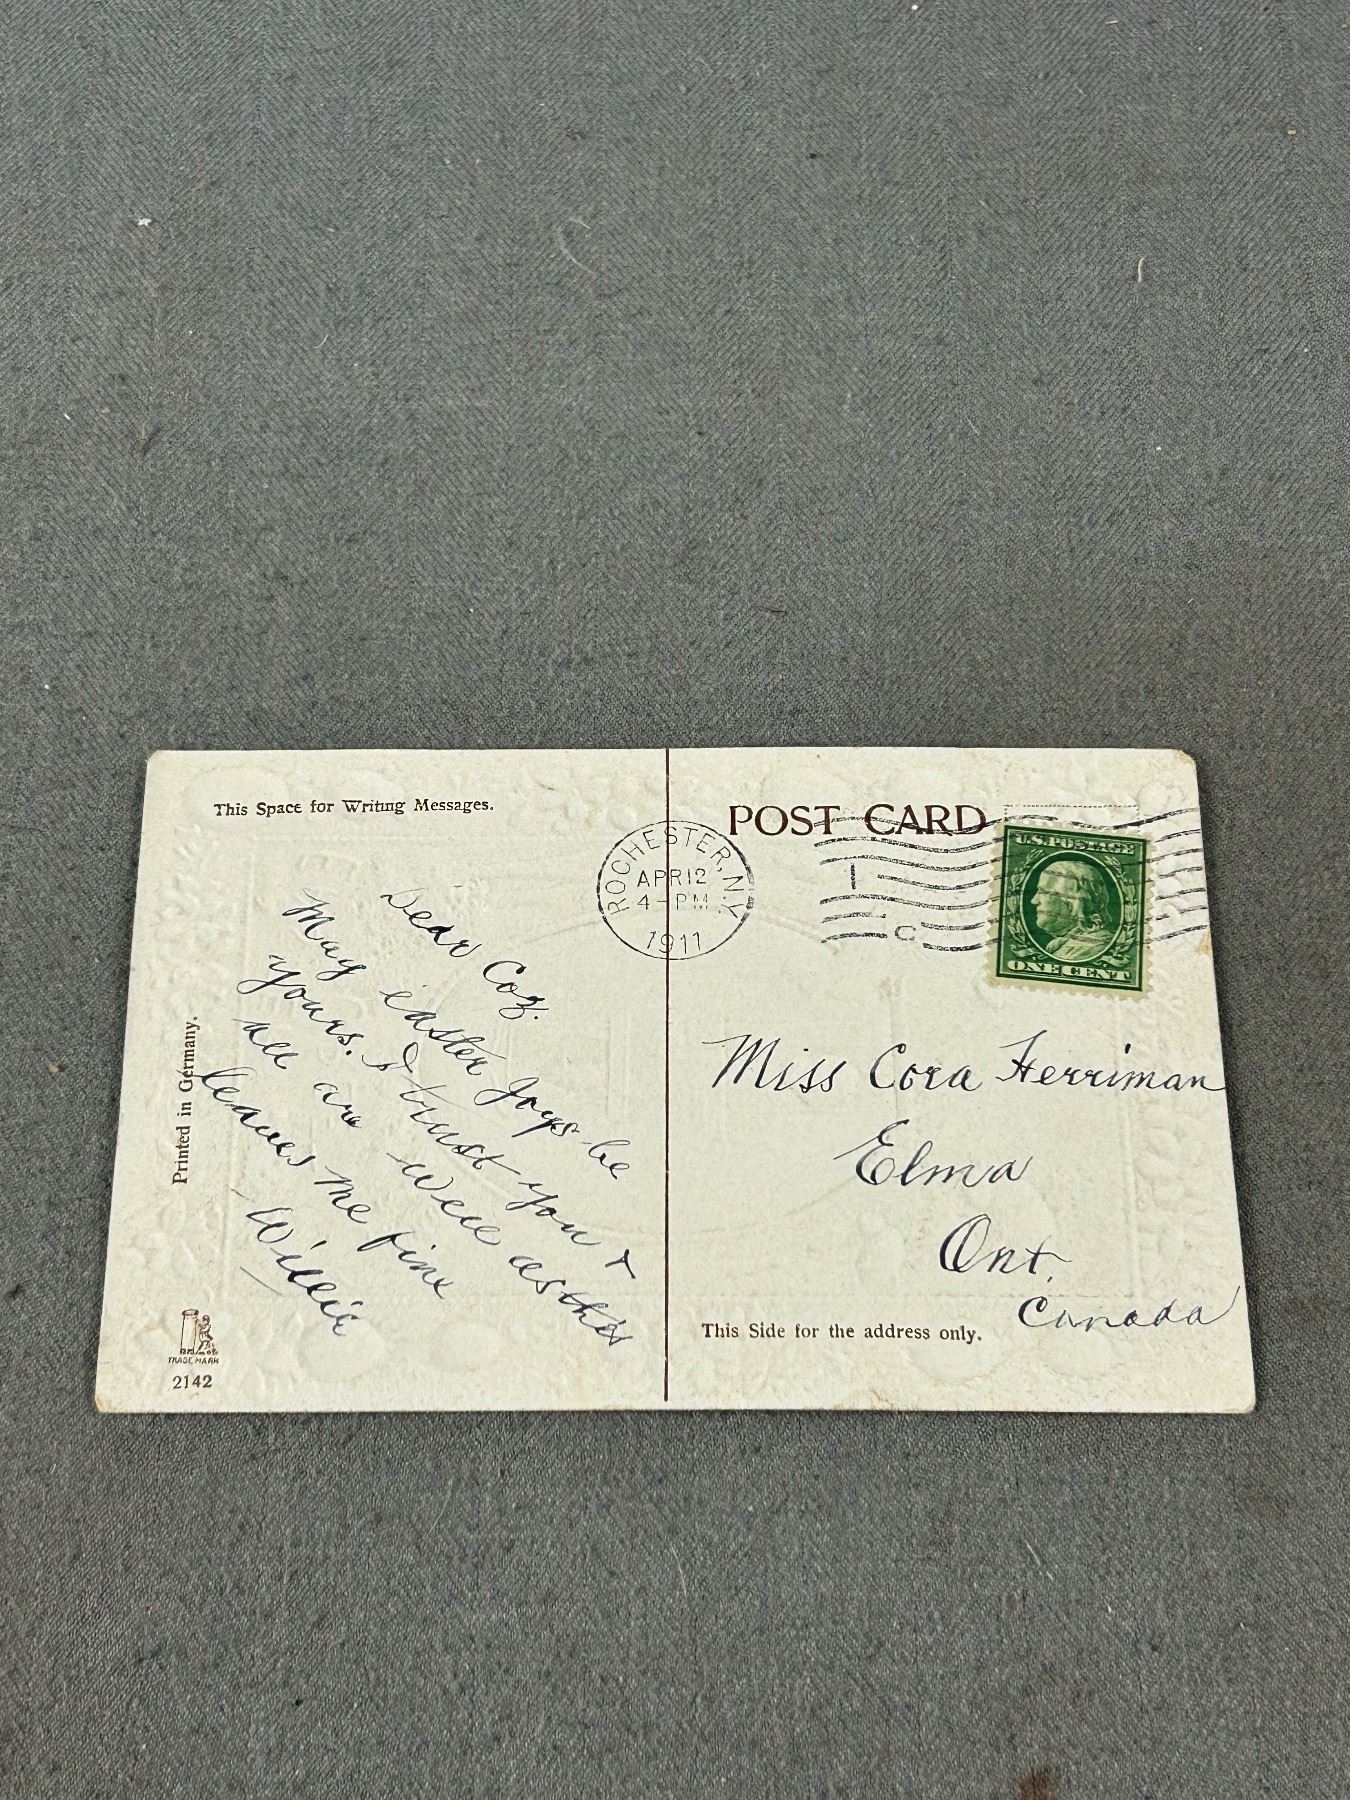 This Space for Writing Messages.
Dear Coz.
May easter Joys be
yours. I trust you +
all are well as this
leaves me fine
Willie
Printed in Germany.
TRADE MARK
2142
POST CARD
ROCHESTER, N.Y.
APR 12
4-PM
1911
1
C
U.S. POSTAGE
ONE CENT
Miss Cora Herriman
Elma
Ont.
Canada
This Side for the address only.